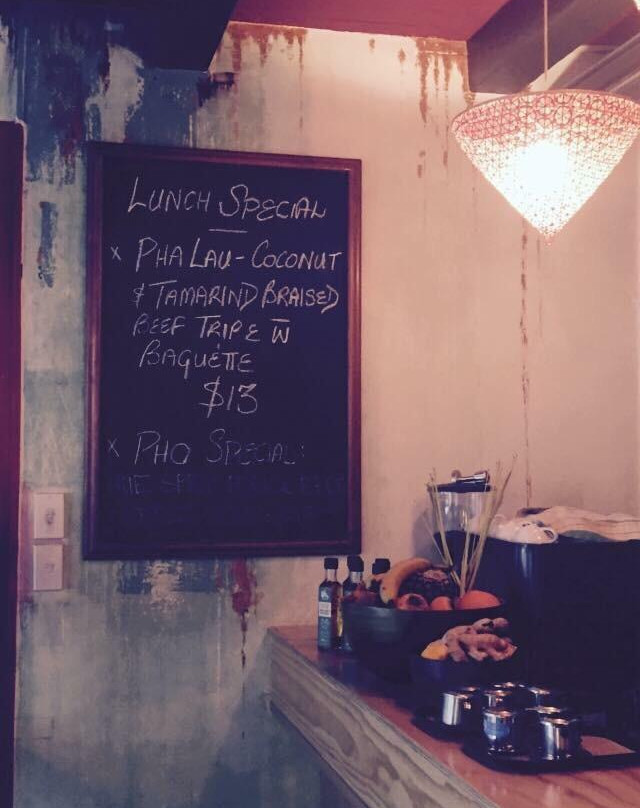 LUNCH SPECIAL
x PHA LAU - COCONUT
& TAMARIND BRAISED
BEEF TRIPE W
BAGUETTE
$13
x PHO SPECIAL: